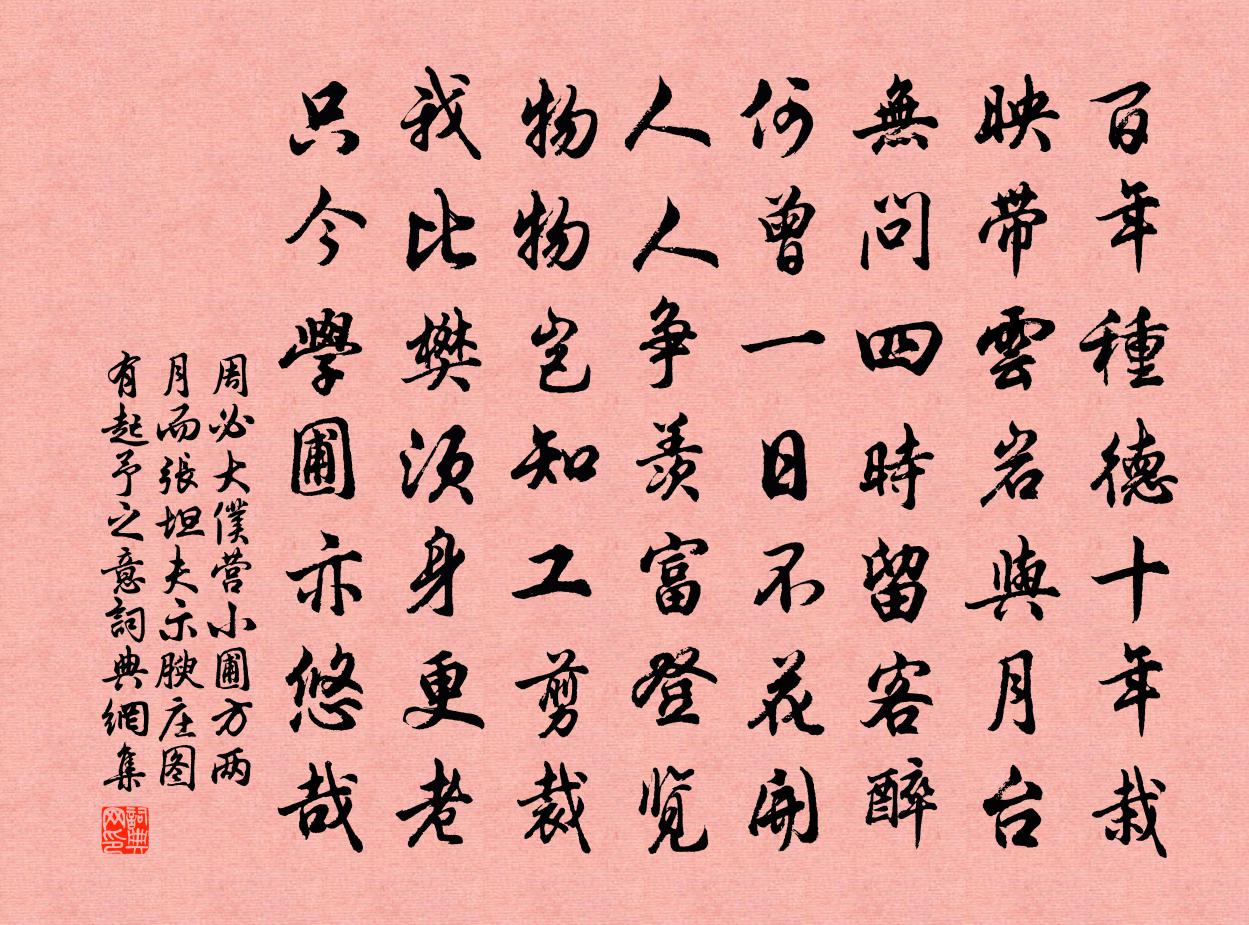 百年種德十年栽
映带雲岩與月台
無問四時留客醉
何曾一日不花開
人人争羨富登览
物物岂知工剪裁
我比樊须身更老
只今學圃亦悠哉
周必大僕营小圃方两
月而張坦夫示腴庄图
有起予之意詞典網集
詞典网印